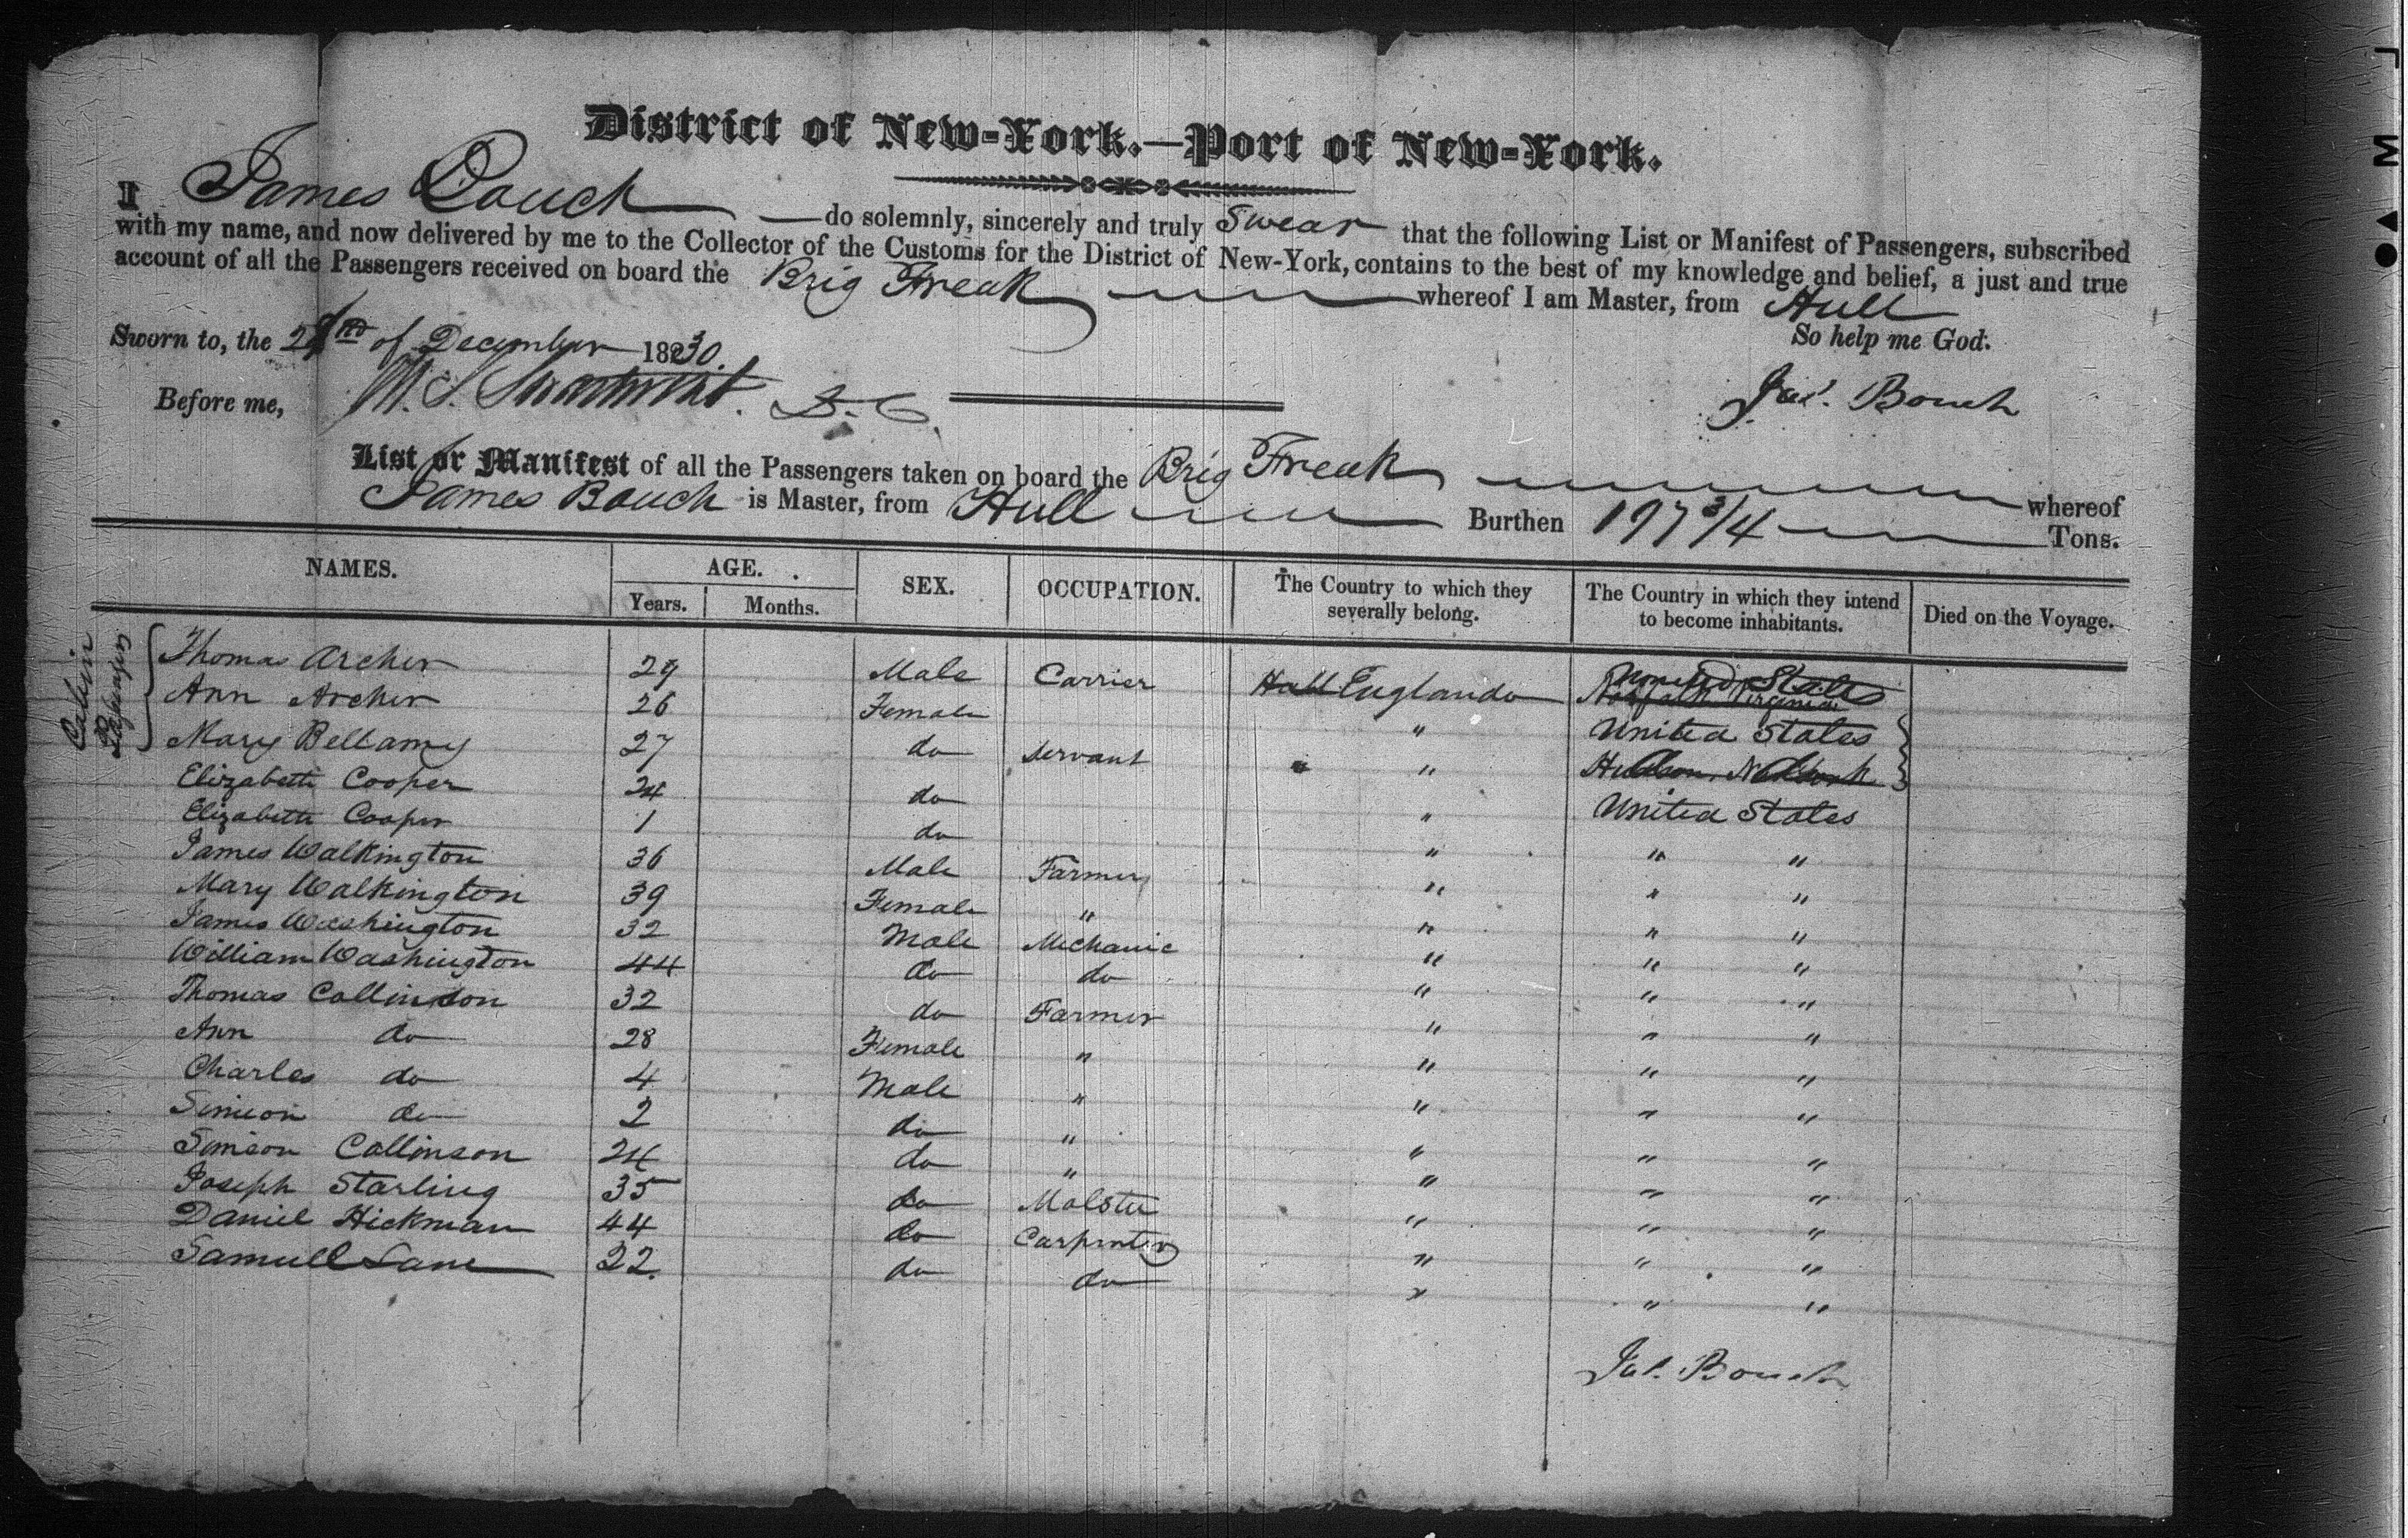 District of New-York.—Port of New-York.
I James Bouch do solemnly, sincerely and truly Swear that the following List or Manifest of Passengers, subscribed
with my name, and now delivered by me to the Collector of the Customs for the District of New-York, contains to the best of my knowledge and belief, a just and true
account of all the Passengers received on board the Brig Freak whereof I am Master, from Hull
So help me God.
Sworn to, the of December 1830
Before me, Jas. Bouch
List or Manifest of all the Passengers taken on board the Brig Freak whereof
James Bouch is Master, from Hull Burthen 197 3/4 Tons.
NAMES. AGE. Years. Months. SEX. OCCUPATION. The Country to which they severally belong. The Country in which they intend to become inhabitants. Died on the Voyage.
Cabin Passengers
Thomas Archer 29 Male Carrier Hull England United States Norfolk Virginia
Ann Archer 26 Female " United States
Mary Bellamy 27 do Servant " " Hudson N. York
Elizabeth Cooper 24 do " United States
Elizabeth Cooper 1 do " " "
James Walkington 36 Male Farmer " " "
Mary Walkington 39 Female " " " "
James Washington 32 Male Mechanic " " "
William Washington 44 do do " " "
Thomas Collinson 32 do Farmer " " "
Ann do 28 Female " " " "
Charles do 4 Male " " " "
Simeon do 2 do " " " "
Simeon Collinson 24 do " " " "
Joseph Starling 35 do Malster " " "
Daniel Hickman 44 do Carpenter " " "
Samuel Lane 22 do do " " "
Jas. Bouch
L M